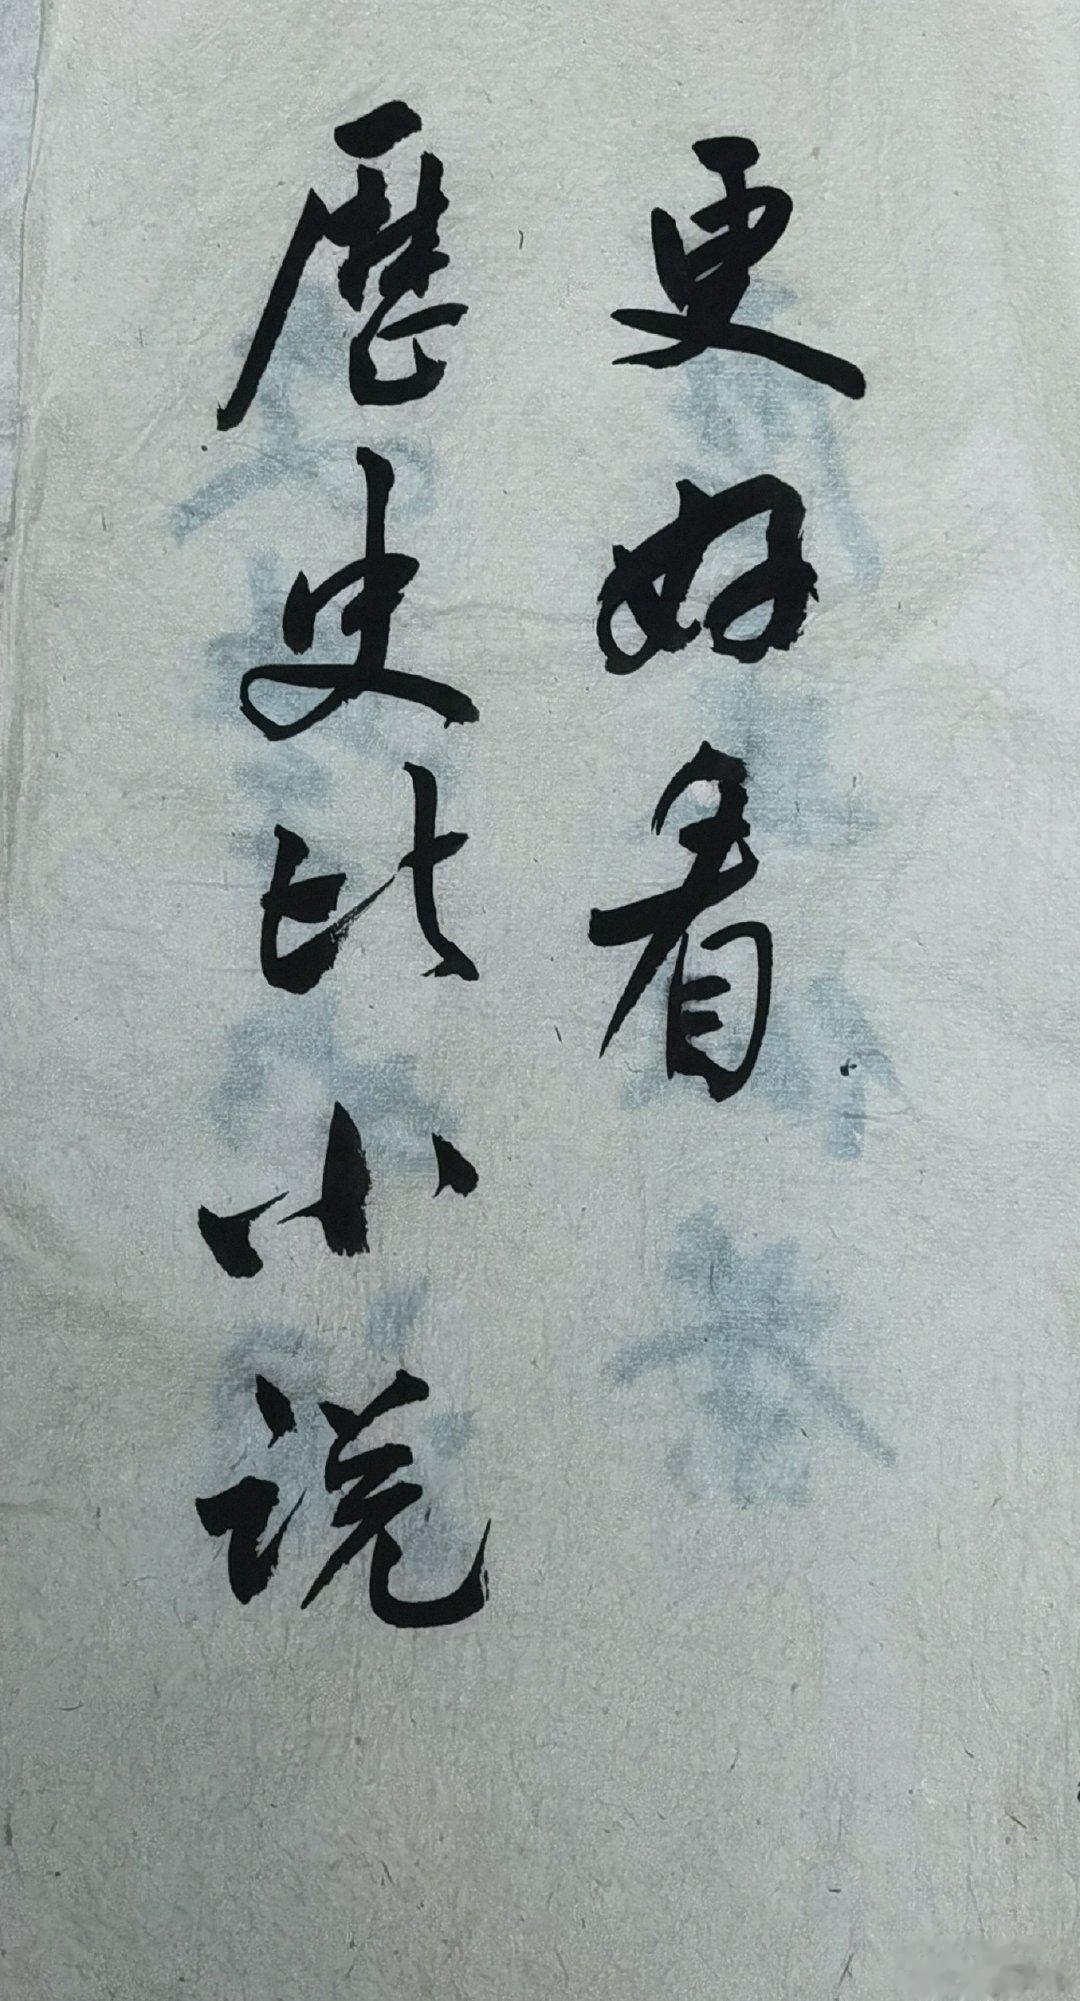 歷史比小说
更好看